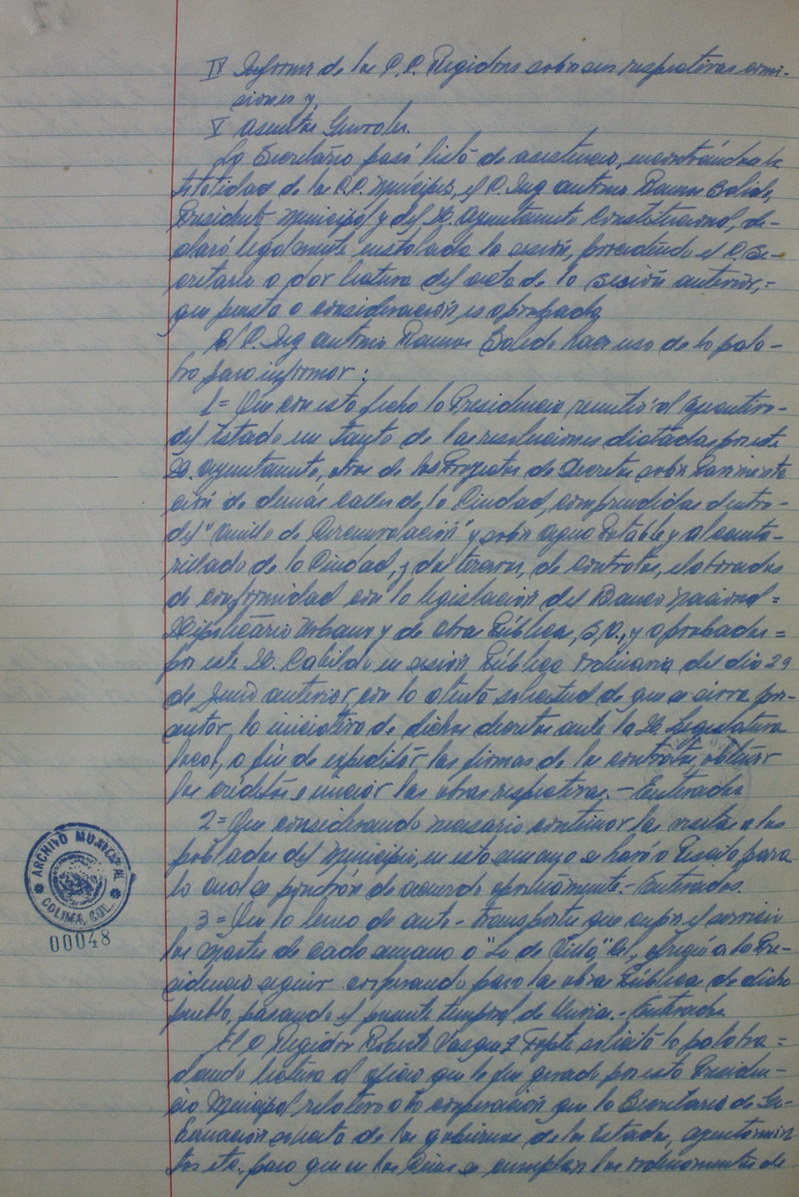 IV Informe de los C.C. Regidores sobre sus respectivas comi-
siones y
V Asuntos Generales.
La Secretaría pasó lista de asistencia, encontrándose la
totalidad de los C.C. Munícipes, el C. Ing Antonio Ramos Salido,
Presidente Municipal y del H. Ayuntamiento Constitucional, de-
claró legalmente instalada la sesión, procediendo el C. Se-
cretario a dar lectura del acta de la sesión anterior, =
que puesta a consideración, es aprobada
El C. Ing Antonio Ramos Salido hace uso de la pala-
bra para informar:
1= Que con esta fecha la Presidencia remitió al Ejecutivo-
del Estado un tanto de las resoluciones dictadas por este
H. Ayuntamiento, otro de los Proyectos de Decretos sobre Pavimenta
ción de demás calles de la Ciudad, comprendidas dentro-
del "Anillo de Circunvalación" y sobre Agua Potable y Alcanta-
rillado de la Ciudad, y de terceros, de contratos, elaborados
de conformidad con la legislación del Banco Nacional =
Hipotecario Urbano y de Obras Públicas, S.A., y aprobados =
por este H. Cabildo en sesión Pública Ordinaria del día 29
de Junio anterior, con la atenta solicitud de que se sirva por
autor, la iniciativa de dichos decretos ante la H. Legislatura
Local, a fin de expeditar las firmas de los contratos, obtener
los créditos e iniciar las obras respectivas.- Enterados
2= Que considerando necesario continuar las visitas a los
poblados del Municipio, en esta semana se hará a para
lo cual se pondrán de acuerdo oportunamente.- Enterados.
3= Que la línea de auto-transportes que cubre el servicio
los Martes de cada semana a "Lo de Villa", Col., ofreció a la Pre-
sidencia seguir cooperando para la obra Pública de dicho
pueblo, pasando el presente temporal de lluvia.- Enterados
El C Regidor Roberto Vasquez solicitó la palabra =
dando lectura al oficio que le fue girado por esta Presiden-
cia Municipal relativo a la cooperación que la Secretaría de Go-
bernación solicita de los gobiernos de los Estados, ayuntamien
tos etc. para que en los Cines se cumplan los ordenamientos de
ARCHIVO MUNICIPAL
COLIMA, COL.
00048